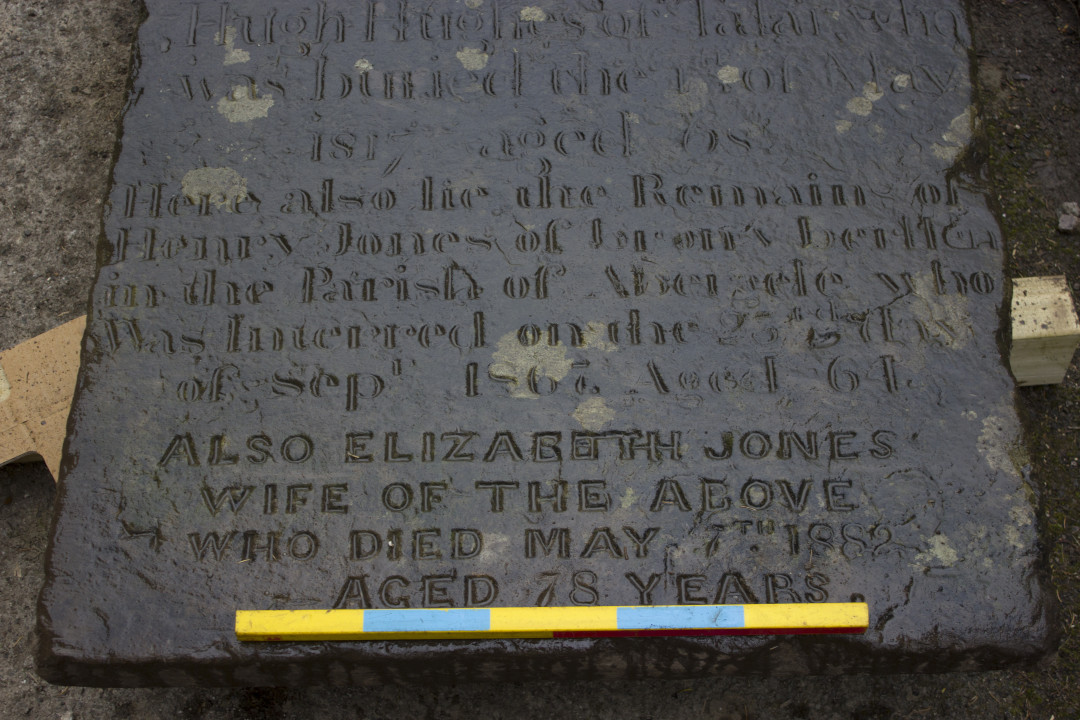 Hugh Hughes of Talar, who
was buried the 1st of May
1817 aged 68
Here also lie the Remain of
Henry Jones of
in the Parish of Abergele who
Was Interred on the 23rd day
of Sepr 1867. Aged 64.
ALSO ELIZABETH JONES
WIFE OF THE ABOVE
WHO DIED MAY 7TH 1882
AGED 78 YEARS.